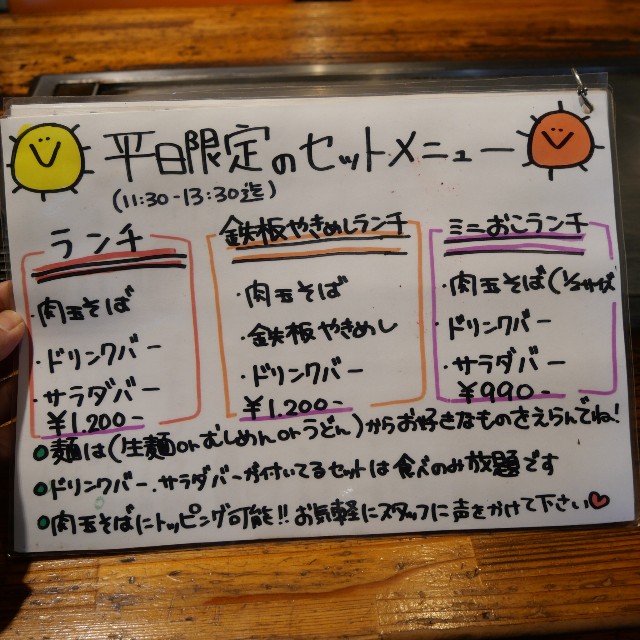 平日限定のセットメニュー
(11:30-13:30迄)
ランチ
・肉玉そば
・ドリンクバー
・サラダバー
¥1,200-
鉄板やきめしランチ
・肉玉そば
・鉄板やきめし
・ドリンクバー
¥1,200-
ミニおこランチ
・肉玉そば(1/2サイズ
・ドリンクバー
・サラダバー
¥990-
●麺は(生麺orむしめんorうどん)からお好きなものをえらんでね!
●ドリンクバー・サラダバーが付いてるセットは食べのみ放題です
●肉玉そばにトッピング可能!!お気軽にスタッフに声をかけて下さい♥